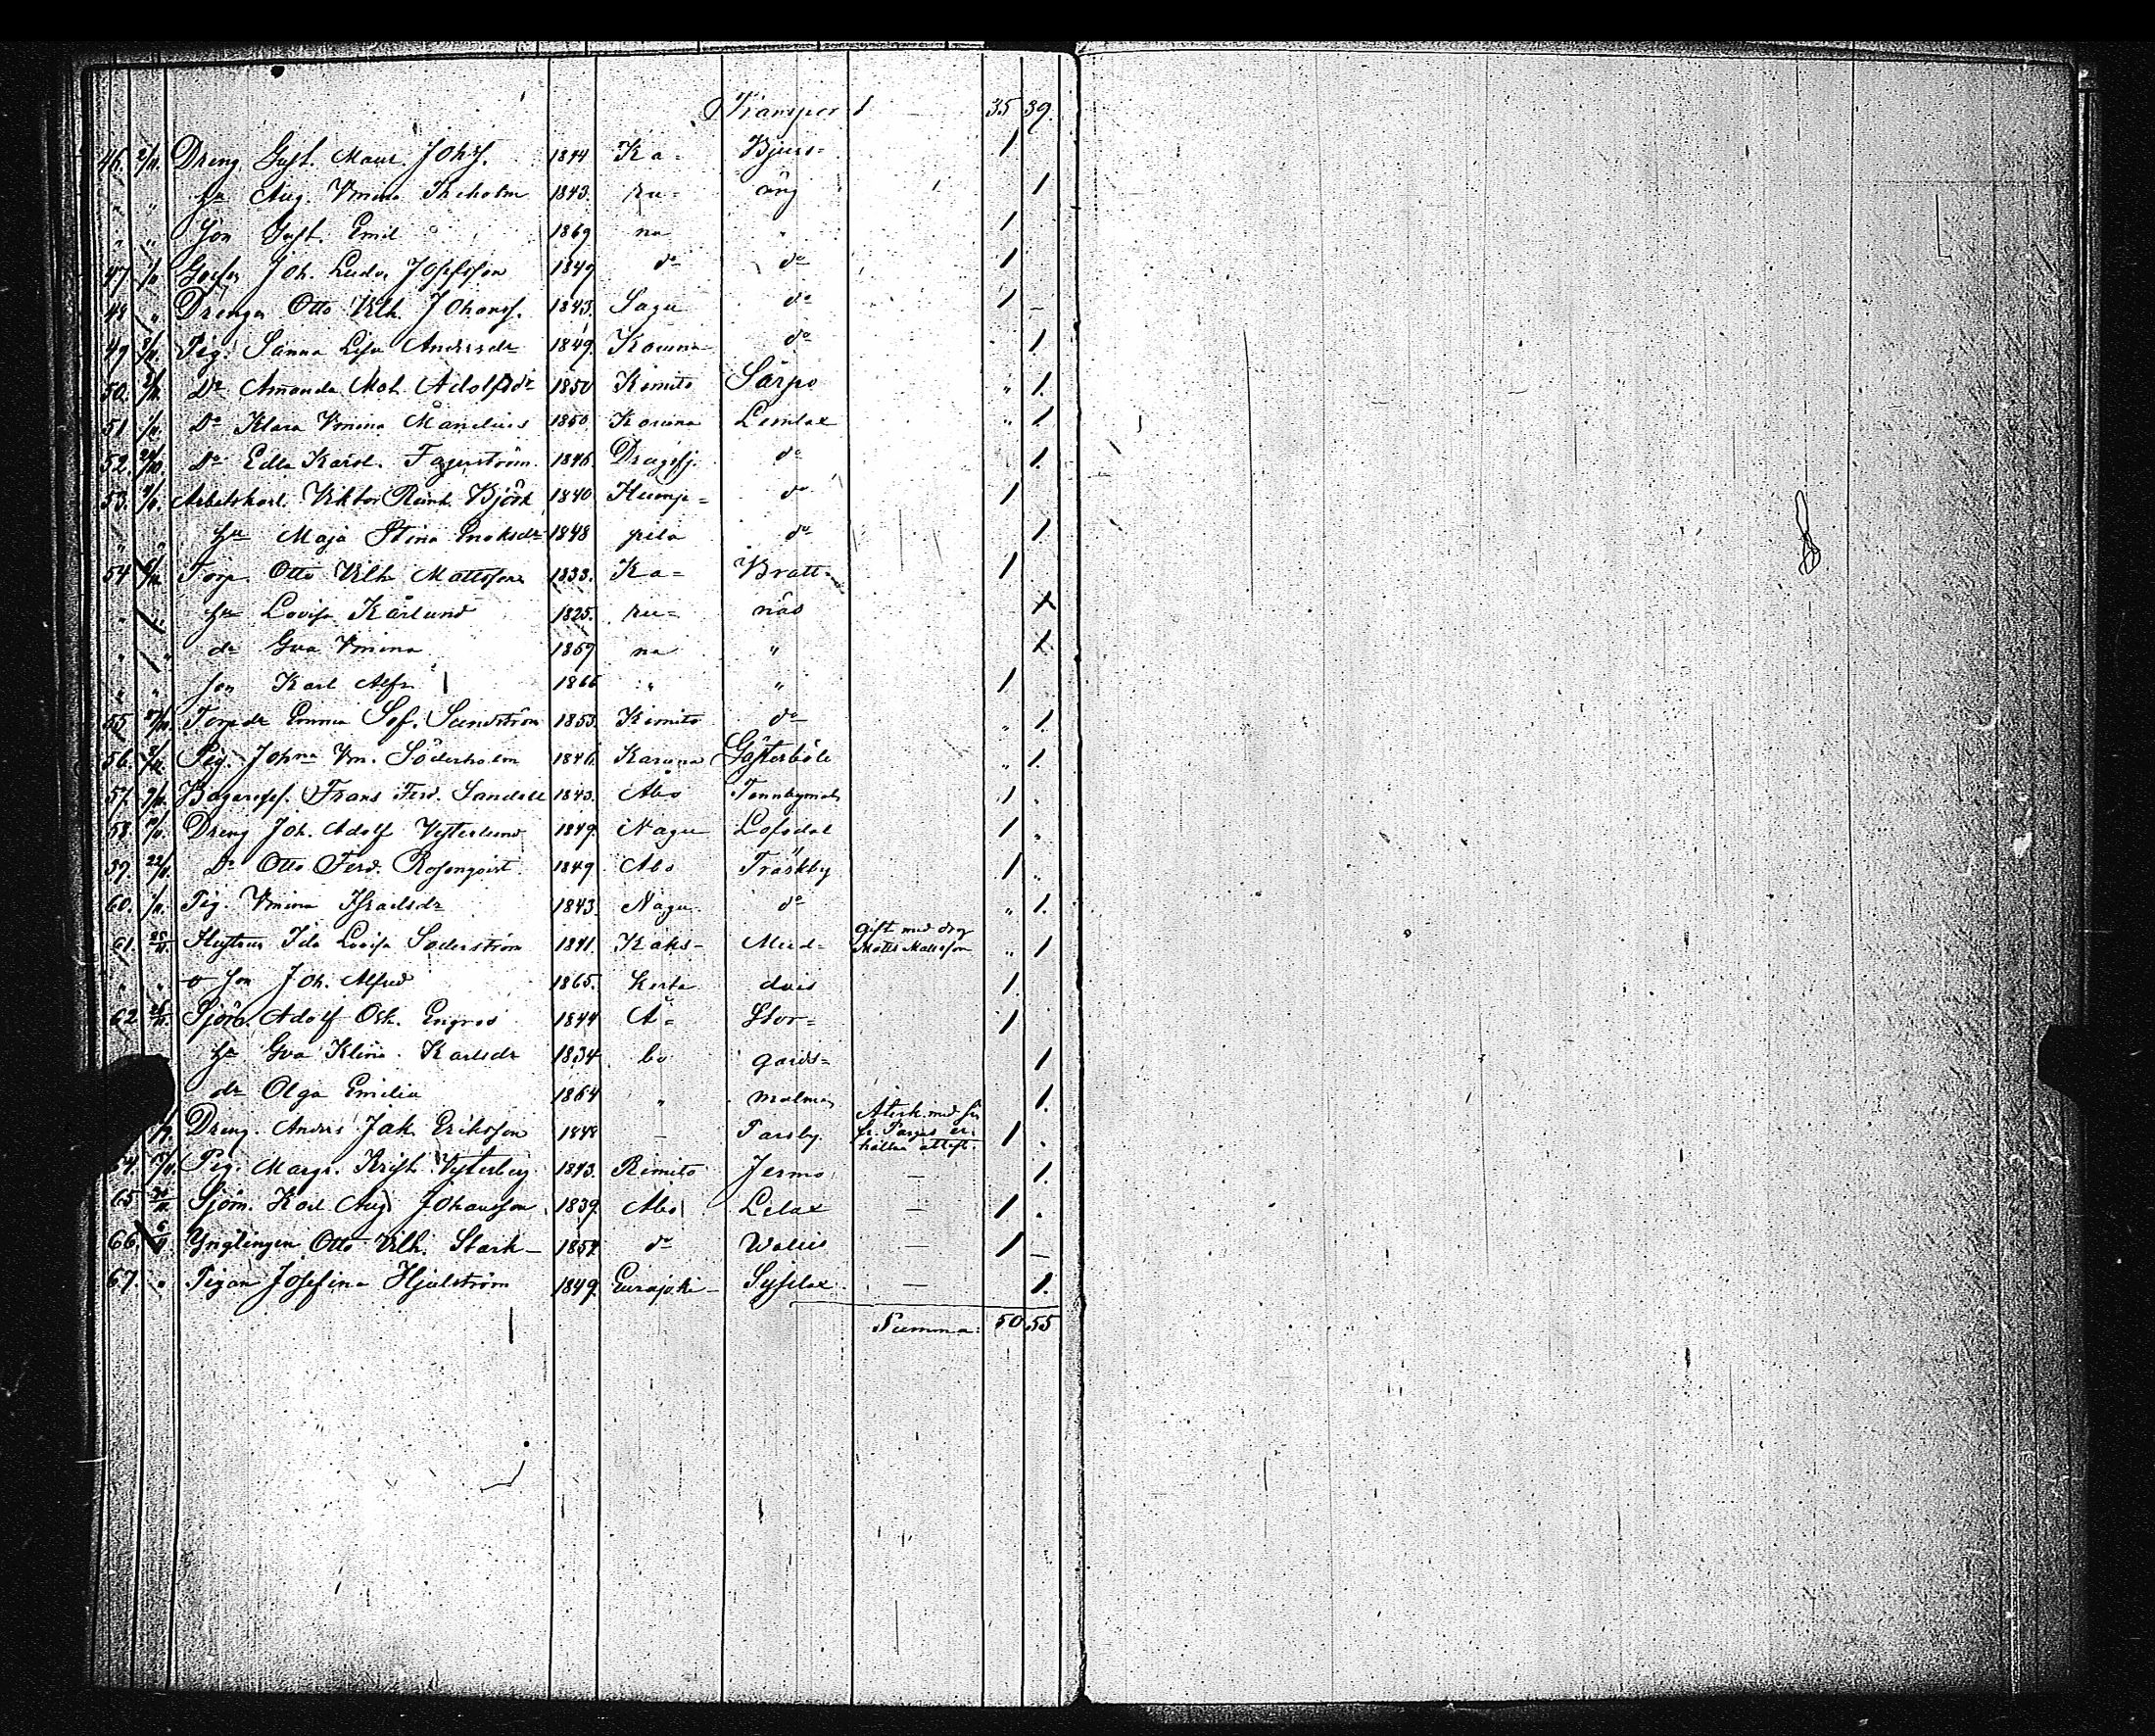 Transport 35 39.
46. 2/11. Dreng Gust. Maur. Johs. 1844 Ka= Bjurs= 1
" " hu Aug. Vmina Theholm 1843. ru= äng 1
" " Son Gust. Emil 1869 na " 1
47. Joh. Ludv. Josefsson 1849 do do 1
48 " Drengen Otto Vilh. Johanss. 1843. Sagu do 1 –
49 Pig. Sanna Lisa Andersdr 1849. Karuna do 1.
50. Do Amanda Mat. Adolfsdr 1850 Kimito Särpo " 1.
51 Do Klara Vmina Mandelius 1850. Karuna Lemlax " 1
52. Do Edla Karol. Fagerström. 1846. Dragsfj. do 1.
53. Arbetskarl. Viktor Reinh. Björk 1840. Kump= do 1
" " hu Maja Stina Enoksdr 1848 pila do 1
54 Torp. Otto Vilh. Mattsson 1833. Ka= Bratt= 1
" " hu Lovisa Karlund 1825. ru= näs 1
" " dr Eva Vmina 1859 na " 1.
" " son Karl Alfr. 1866 " " 1
55 Torpdr Emma Sof. Sundström 1853. Kimito do " 1.
56. Pig. Johna Vm. Söderholm 1846. Karuna Gästerböle " 1.
57. Bagaregs. Frans Ferd. Sandell 1843. Åbo Tennbymalm 1 .
58. Dreng Joh. Adolf Vesterlund 1849. Nagu Lofsdal 1 "
59. 22/11. Do Otto Ferd. Rosenqvist 1849 Åbo Träskby 1 "
60. Pig. Vmina Israelsdr 1843. Nagu do " 1.
61. Hustrun Ida Lovisa Söderström 1841. Kaks- Mud- gift med drg Matts Mattsson " 1
" " o son Joh. Alfred 1865. kerta dais 1.
62 Sjöm. Adolf Osk. Engros 1844 Å= Stor= 1
hu Eva Klina. Karlsdr 1834 bo gards= 1
dr Olga Emilia 1864 " malmen 1.
Dreng. Anders Jak. Eriksson 1848 – Parsby. Återk. med sin fr. Pargas er- hållna attest. 1 .
64. Pig. Margr. Krist. Vesterberg 1843. Rimito Jermo – 1.
65 Sjöm. Karl Aug. Johansson 1839 Åbo Lilax – 1 .
66. Ynglingen Otto Vilh. Stark – 1854 do Wallis – 1 –
67. " Pigan Josefina Hjulström 1849. Eurajoki – Sysilax – 1.
Summa: 50 55